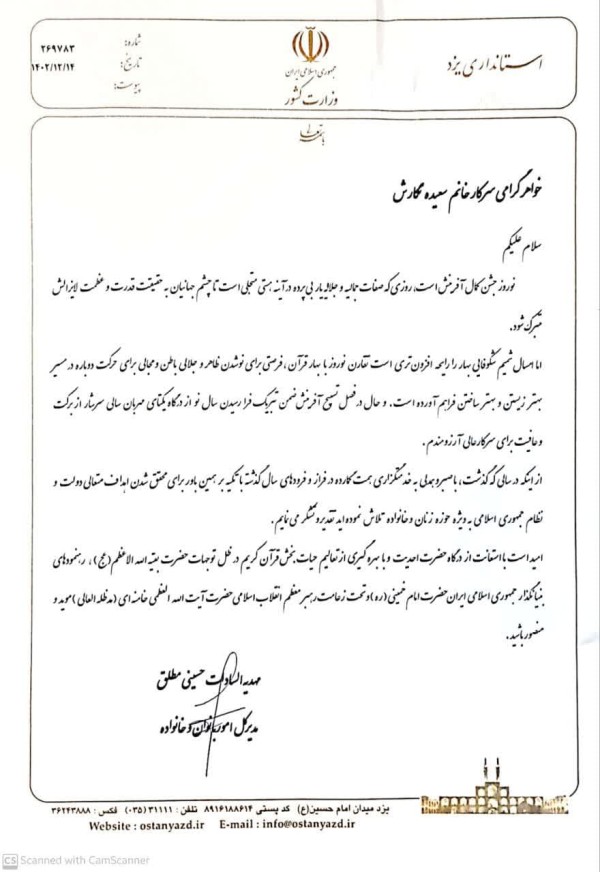 استانداری یزد
جمهوری اسلامی ایران
وزارت کشور
شماره: ۲۶۹۷۸۳
تاریخ: ۱۴۰۲/۱۲/۱۴
پیوست:
باسمه تعالی
خواهر گرامی سرکار خانم سعیده نگارش
سلام علیکم
نوروز جشن کمال آفرینش است، روزی که صفات جمالیه و جلالیه یار بی پرده در آینه هستی متجلی است تا چشم جهانیان به حقیقت قدرت و عظمت لایزالش
متبرک شود.
اما امسال شمیم شکوفایی بهار را رایحه افزون تری است تقارن نوروز با بهار قرآن، فرصتی برای نو شدن ظاهر و جلای باطن و مجالی برای حرکت دوباره در مسیر
بهتر زیستن و بهتر ساختن فراهم آورده است. و حال در فصل تسبیح آفرینش ضمن تبریک فرا رسیدن سال نو از درگاه یکتای مهربان سالی سرشار از برکت
و عافیت برای سرکار عالی آرزومندم.
از اینکه در سالی که گذشت، با صبر و همدلی به خدمتگزاری همت گمارده در فراز و فرودهای سال گذشته با تکیه بر همین باور برای محقق شدن اهداف متعالی دولت و
نظام جمهوری اسلامی به ویژه حوزه زنان و خانواده تلاش نموده اید تقدیر و تشکر می نمایم.
امید است با استعانت از درگاه حضرت احدیت و با بهره گیری از تعالیم حیات بخش قرآن کریم در ظل توجهات حضرت بقیه الله الاعظم (عج)، رهنمودهای
بنیانگذار جمهوری اسلامی ایران حضرت امام خمینی (ره) و تحت زعامت رهبر معظم انقلاب اسلامی حضرت آیت الله العظمی خامنه ای (مدظله العالی) موید و
منصور باشید.
مهدیه السادات حسینی مطلق
مدیرکل امور بانوان و خانواده
یزد میدان امام حسین(ع) کد پستی ۸۹۱۶۱۸۸۶۱۴ تلفن: ۳۱۱۱۱(۰۳۵) فکس: ۳۶۲۴۳۸۸۸
Website : ostanyazd.ir E-mail : info@ostanyazd.ir
CS Scanned with CamScanner